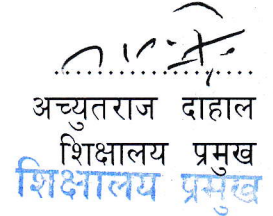 अच्युतराज दाहाल
शिक्षालय प्रमुख
शिक्षालय प्रमुख